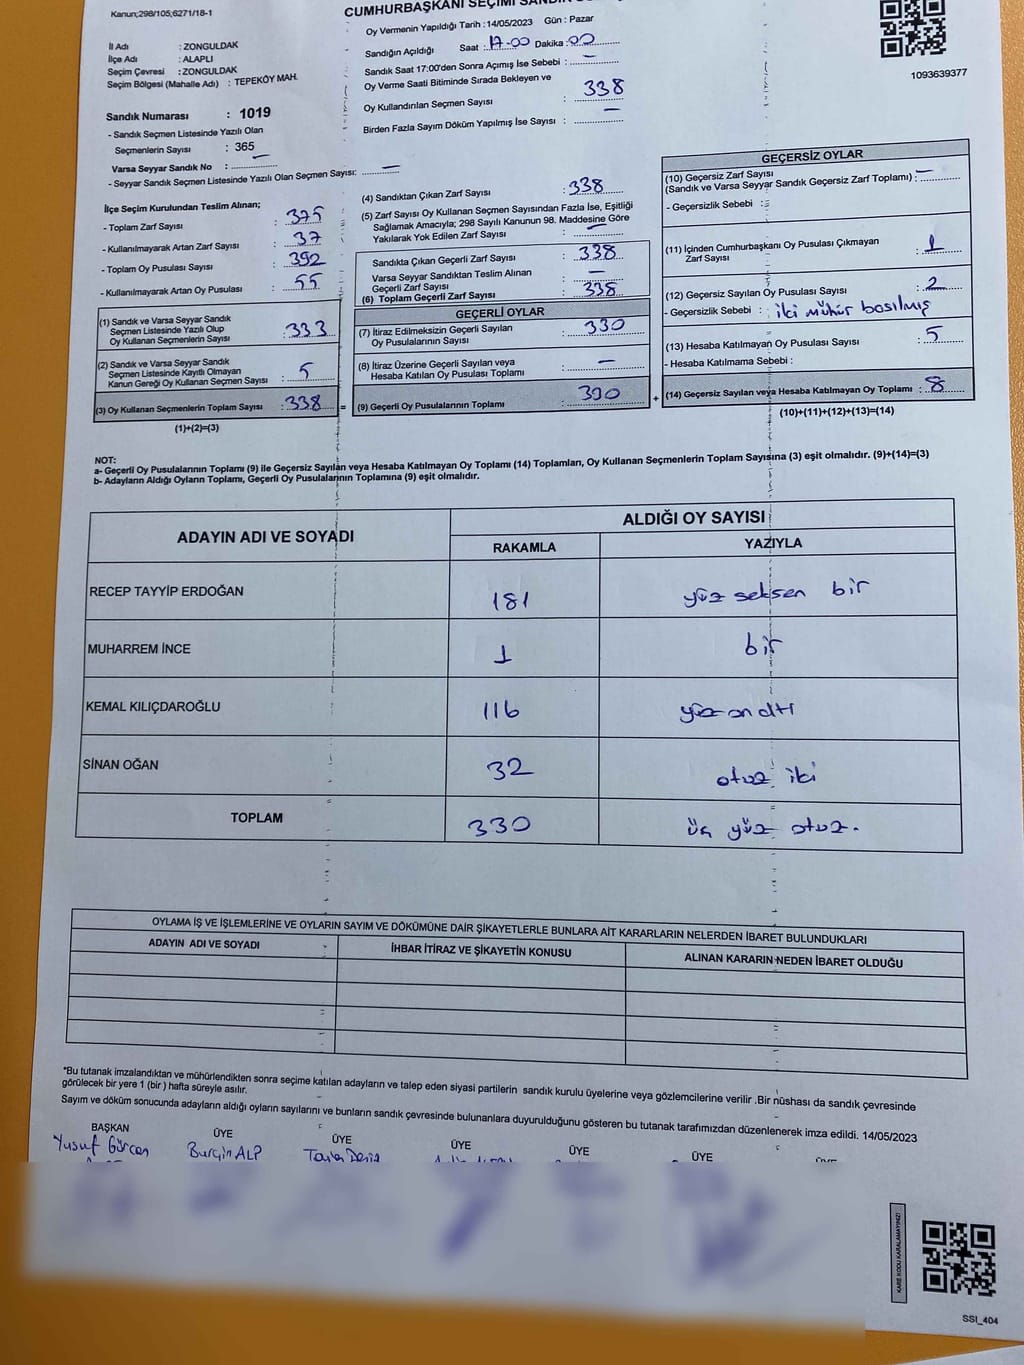 Kanun;298/105;6271/18-1
CUMHURBAŞKANI SEÇİMİ
Oy Vermenin Yapıldığı Tarih :14/05/2023 Gün : Pazar
Sandığın Açıldığı Saat : 17.00 Dakika : 00
Sandık Saat 17:00'den Sonra Açımış İse Sebebi : —
Oy Verme Saati Bitiminde Sırada Bekleyen ve
Oy Kullandırılan Seçmen Sayısı : 338
Birden Fazla Sayım Döküm Yapılmış İse Sayısı : —
1093639377
İl Adı : ZONGULDAK
İlçe Adı : ALAPLI
Seçim Çevresi : ZONGULDAK
Seçim Bölgesi (Mahalle Adı) : TEPEKÖY MAH.
Sandık Numarası : 1019
- Sandık Seçmen Listesinde Yazılı Olan
Seçmenlerin Sayısı : 365
Varsa Seyyar Sandık No : —
- Seyyar Sandık Seçmen Listesinde Yazılı Olan Seçmen Sayısı: —
İlçe Seçim Kurulundan Teslim Alınan;
- Toplam Zarf Sayısı : 375
- Kullanılmayarak Artan Zarf Sayısı : 37
- Toplam Oy Pusulası Sayısı : 392
- Kullanılmayarak Artan Oy Pusulası : 55
(1) Sandık ve Varsa Seyyar Sandık
Seçmen Listesinde Yazılı Olup
Oy Kullanan Seçmenlerin Sayısı : 333
(2) Sandık ve Varsa Seyyar Sandık
Seçmen Listesinde Kayıtlı Olmayan
Kanun Gereği Oy Kullanan Seçmen Sayısı : 5
(3) Oy Kullanan Seçmenlerin Toplam Sayısı : 338 =
(1)+(2)=(3)
(4) Sandıktan Çıkan Zarf Sayısı : 338
(5) Zarf Sayısı Oy Kullanan Seçmen Sayısından Fazla İse, Eşitliği
Sağlamak Amacıyla; 298 Sayılı Kanunun 98. Maddesine Göre
Yakılarak Yok Edilen Zarf Sayısı : —
Sandıkta Çıkan Geçerli Zarf Sayısı : 338
Varsa Seyyar Sandıktan Teslim Alınan
Geçerli Zarf Sayısı : —
(6) Toplam Geçerli Zarf Sayısı : 338
GEÇERLİ OYLAR
(7) İtiraz Edilmeksizin Geçerli Sayılan
Oy Pusulalarının Sayısı : 330
(8) İtiraz Üzerine Geçerli Sayılan veya
Hesaba Katılan Oy Pusulası Toplamı : —
(9) Geçerli Oy Pusulalarının Toplamı : 330 +
GEÇERSİZ OYLAR
(10) Geçersiz Zarf Sayısı
(Sandık ve Varsa Seyyar Sandık Geçersiz Zarf Toplamı) : —
- Geçersizlik Sebebi :
(11) İçinden Cumhurbaşkanı Oy Pusulası Çıkmayan
Zarf Sayısı : 1
(12) Geçersiz Sayılan Oy Pusulası Sayısı : 2
- Geçersizlik Sebebi : iki mühür basılmış
(13) Hesaba Katılmayan Oy Pusulası Sayısı : 5
- Hesaba Katılmama Sebebi :
(14) Geçersiz Sayılan veya Hesaba Katılmayan Oy Toplamı : 8
(10)+(11)+(12)+(13)=(14)
NOT:
a- Geçerli Oy Pusulalarının Toplamı (9) ile Geçersiz Sayılan veya Hesaba Katılmayan Oy Toplamı (14) Toplamları, Oy Kullanan Seçmenlerin Toplam Sayısına (3) eşit olmalıdır. (9)+(14)=(3)
b- Adayların Aldığı Oyların Toplamı, Geçerli Oy Pusulalarının Toplamına (9) eşit olmalıdır.
ADAYIN ADI VE SOYADI ALDIĞI OY SAYISI
RAKAMLA YAZIYLA
RECEP TAYYİP ERDOĞAN 181 yüz seksen bir
MUHARREM İNCE 1 bir
KEMAL KILIÇDAROĞLU 116 yüz on altı
SİNAN OĞAN 32 otuz iki
TOPLAM 330 üç yüz otuz.
OYLAMA İŞ VE İŞLEMLERİNE VE OYLARIN SAYIM VE DÖKÜMÜNE DAİR ŞİKAYETLERLE BUNLARA AİT KARARLARIN NELERDEN İBARET BULUNDUKLARI
ADAYIN ADI VE SOYADI İHBAR İTİRAZ VE ŞİKAYETİN KONUSU ALINAN KARARIN NEDEN İBARET OLDUĞU
*Bu tutanak imzalandıktan ve mühürlendikten sonra seçime katılan adayların ve talep eden siyasi partilerin sandık kurulu üyelerine veya gözlemcilerine verilir .Bir nüshası da sandık çevresinde
görülecek bir yere 1 (bir ) hafta süreyle asılır.
Sayım ve döküm sonucunda adayların aldığı oyların sayılarını ve bunların sandık çevresinde bulunanlara duyurulduğunu gösteren bu tutanak tarafımızdan düzenlenerek imza edildi. 14/05/2023
BAŞKAN ÜYE ÜYE ÜYE ÜYE ÜYE ÜYE
Yusuf Gürcan Burçin ALP
KARE KODU KARALAMAYINIZ!
SSI_404